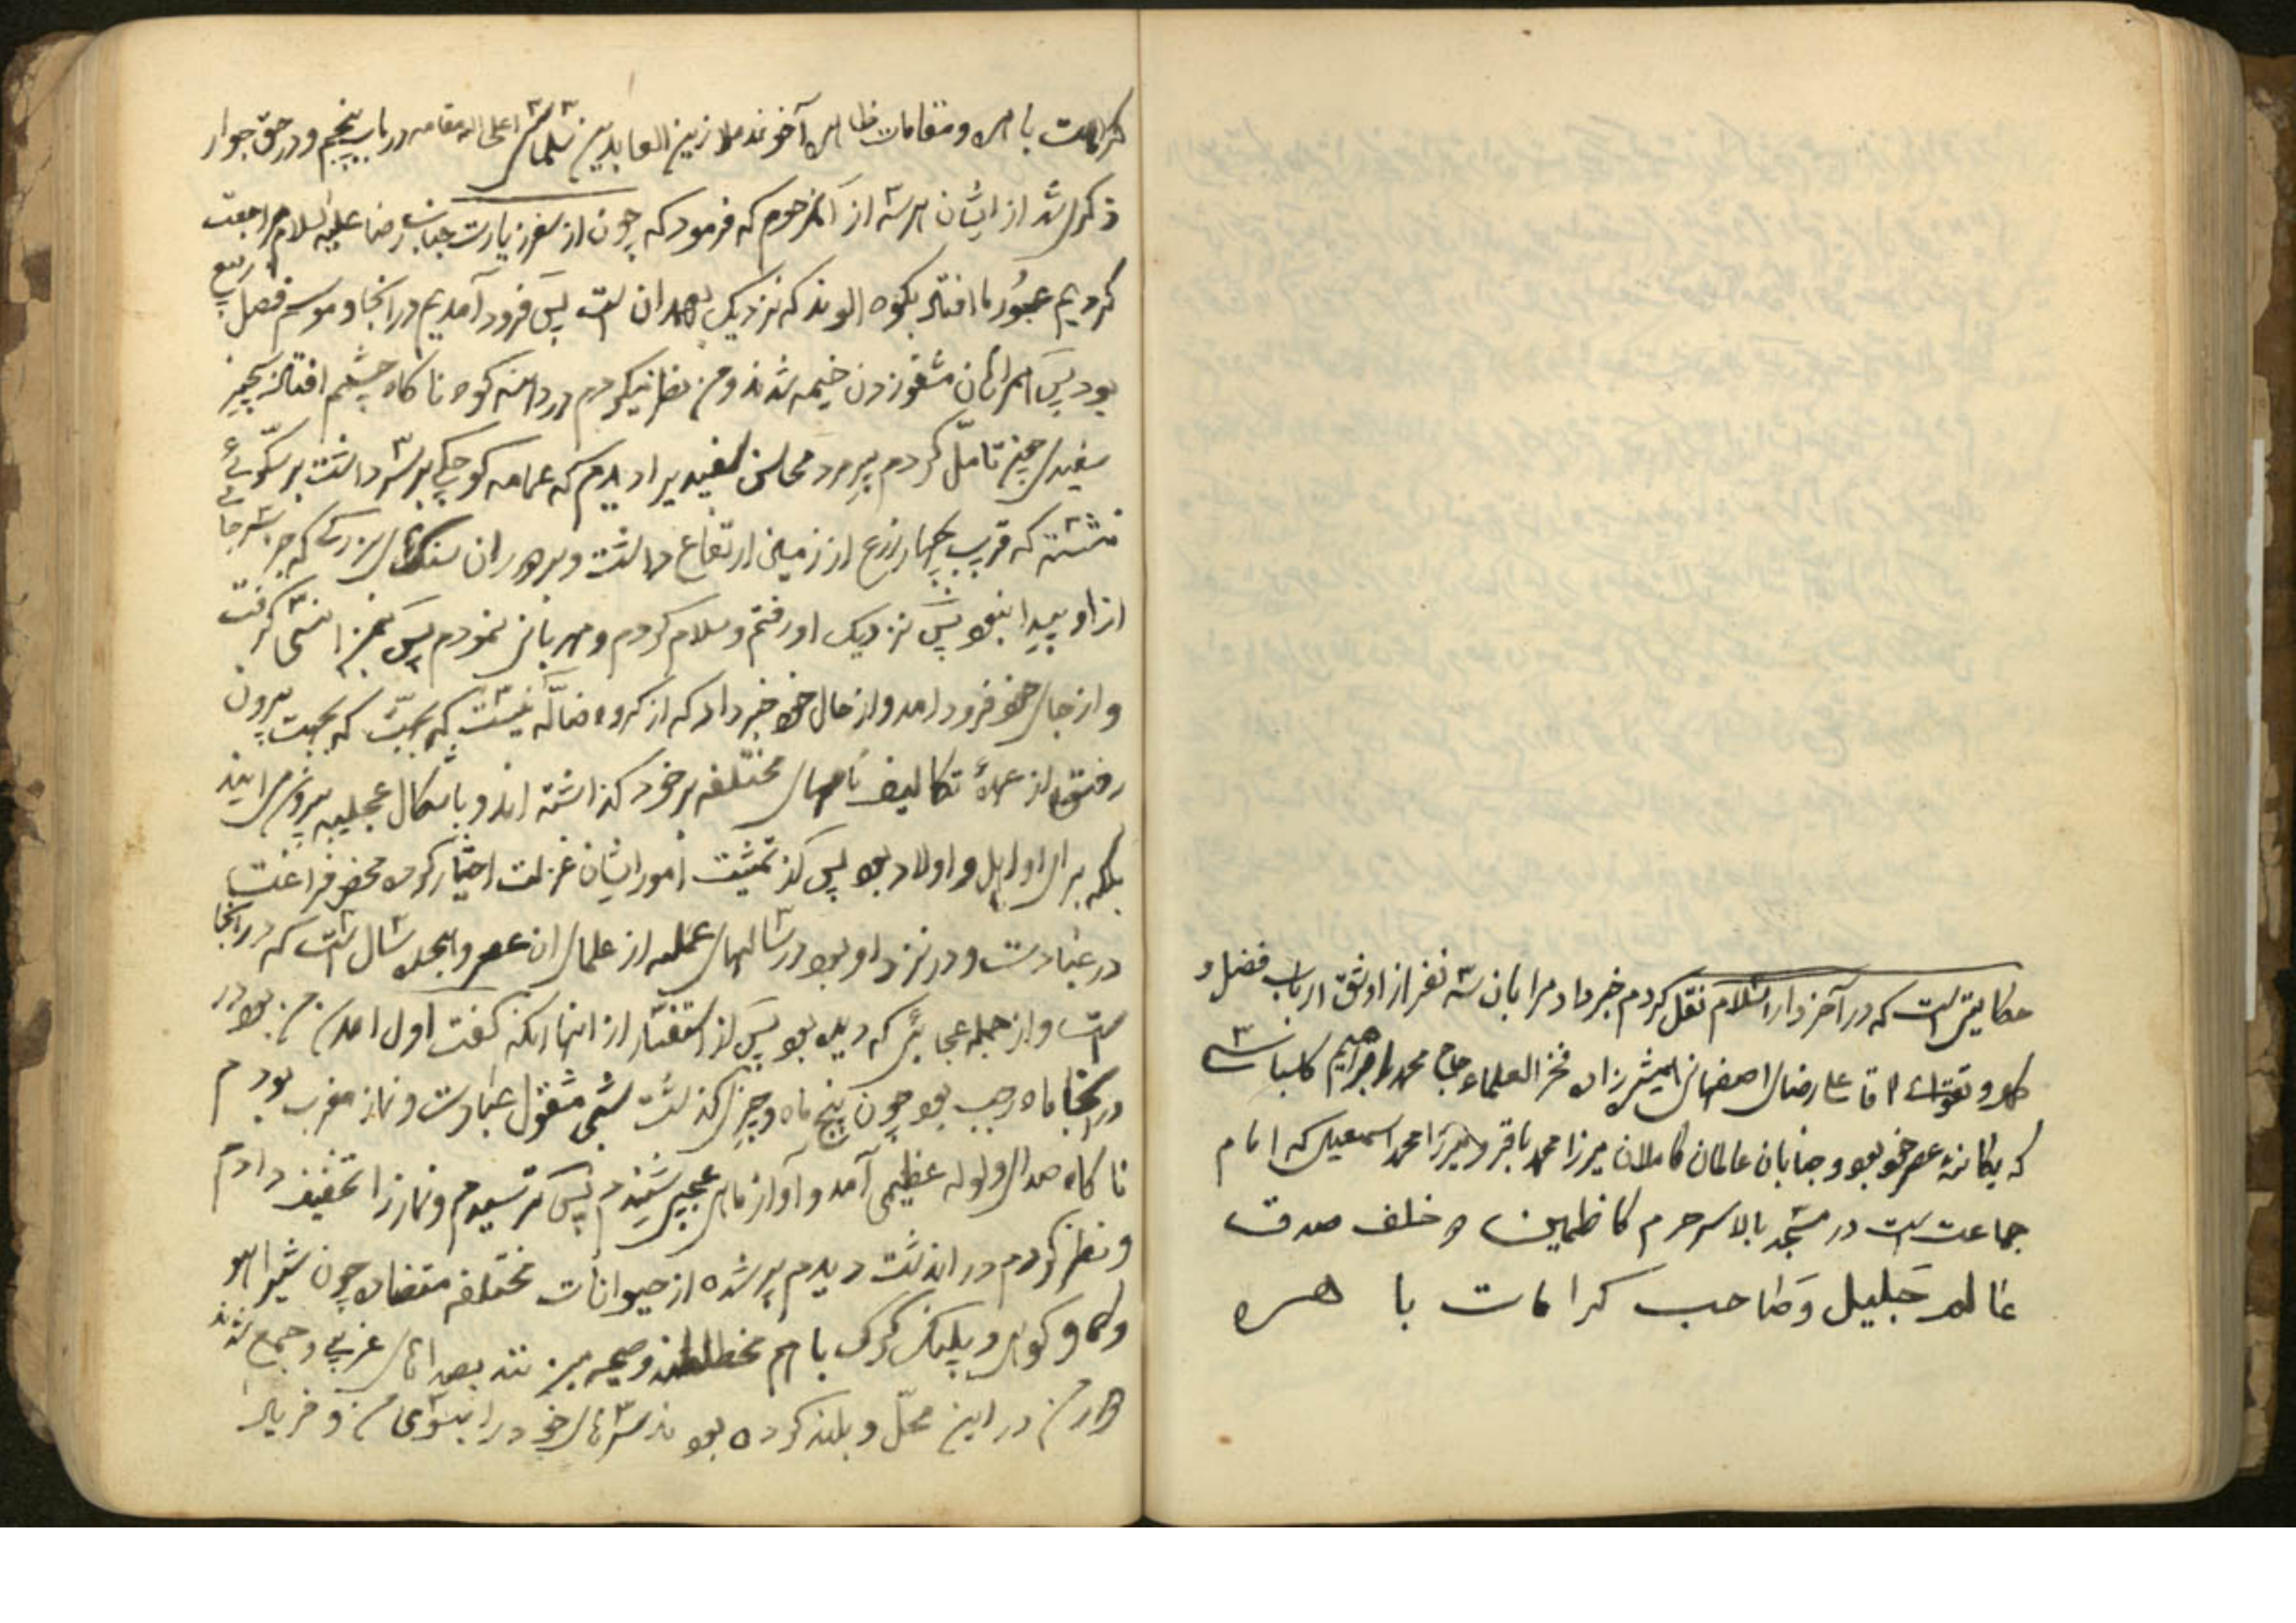 حکایتی است که در آخر دار السلام نقل کردم خبر داد مرا بآن سه نفر از اوثق ارباب فضل و
علم و تقوی آقا علی رضای اصفهانی همشیرزاده فخر العلماء حاج محمد ابراهیم کلباسی
که یکانهٔ عصر خود بود و جنابان عالمان کاملان میرزا محمد باقر و میرزا محمد اسمعیل که امام
جماعت است در مسجد بالاسر حرم کاظمین و خلف صدق
عالم جلیل و صاحب کرامات باهره
کرامات باهره و مقامات ظاهره آخوند ملا زین العابدین سلماسی اعلی الله مقامه در باب پنجم و در حق جوار
ذکری شد از ایشان هر سه از آنمرحوم که فرمود که چون از سفر زیارت جناب رضا علیه السلام مراجعت
کردیم عبور ما افتاد بکوه الوند که نزدیک بهمدان است پس فرود آمدیم در آنجا و موسم فصل ربیع
بود پس همراهان مشغول زدن خیمه شدند و من نظر میکردم در دامنه کوه ناکاه چشمم افتاد بچیز
سفیدی چون تامّل کردم پیرمرد محاسن سفیدیرا دیدم که عمامه کوچکی بر سر داشت بر سکّوئی
نشسته که قریب چهار ذرع از زمین ارتفاع داشت و بر دور آن سنکهای بزرکی که جز سر جائی
از او پیدا نبود پس نزدیک او رفتم و سلام کردم و مهربانی نمودم پس بمن انس گرفت
و از جای خود فرود آمد و از حال خود خبر داد که از کروه ضالّه نیست که بجهت بیرون
رفتن از عمدهٔ تکالیف نامهای مختلفه بر خود کذاشته اند و باشکال عجیبه بیرون میایند
بلکه برای او اهل و اولاد بود پس از تمشیت امور ایشان عزلت اختیار کرده محض فراغت
در عبادت و در نزد او بود رسالهای عملیه از علمای ان عصر و هجده سال است که در آنجا
است و از جمله عجائبی که دیده بود پس از استفسار از انها آنکه کفت اول آمدن من بود در
اینجا ماه رجب بود چون پنج ماه و چیزی گذشت شبی مشغول عبادت و نماز مغرب بودم
ناکاه صدای ولوله عظیمی آمد و آوازهای عجیبی شنیدم پس ترسیدم و نماز را تخفیف دادم
و نظر کردم در اندشت دیدم پر شده از حیوانات مختلفه متضاده چون شیر و آهو
و کاو کوهی و پلنک و کرک با هم مختلطند و صیحه میزنند بصداهای غریبی و جمع شدند
دور من در این محلّ و بلند کرده بودند سرهای خود را بسوی من و فریاد